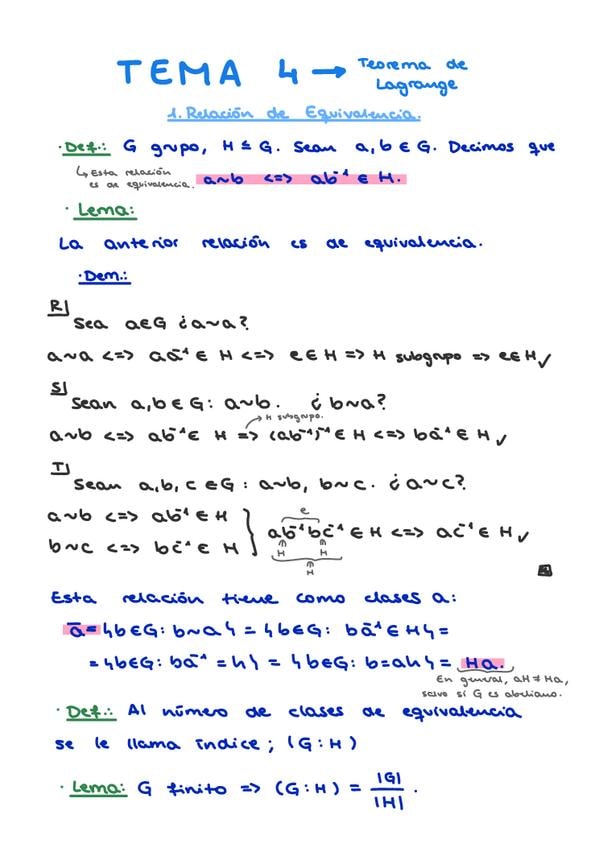 TEMA 4 → Teorema de
Lagrange
1. Relación de Equivalencia.
· Def.: G grupo, H ≤ G. Sean a, b ∈ G. Decimos que
↳ Esta relación
es de equivalencia.
a~b <=> ab⁻¹ ∈ H.
· Lema:
La anterior relación es de equivalencia.
· Dem.:
R|
Sea a∈G ¿a~a?
a~a <=> aa⁻¹ ∈ H <=> e∈H => H subgrupo => e∈H ✓
S|
Sean a, b ∈ G: a~b. ¿b~a?
→ H subgrupo.
a~b <=> ab⁻¹ ∈ H => (ab⁻¹)⁻¹ ∈ H <=> ba⁻¹ ∈ H ✓
T|
Sean a, b, c ∈ G: a~b, b~c. ¿a~c?
e
a~b <=> ab⁻¹ ∈ H
b~c <=> bc⁻¹ ∈ H } ab⁻¹bc⁻¹ ∈ H <=> ac⁻¹ ∈ H ✓
∈ H ∈ H
∈ H
Esta relación tiene como clases a:
ā = {b∈G: b~a} = {b∈G: ba⁻¹ ∈ H} =
= {b∈G: ba⁻¹ = h} = {b∈G: b=ah} = Ha.
En general, aH ≠ Ha,
salvo si G es abeliano.
· Def.: Al número de clases de equivalencia
se le llama índice; (G:H)
· Lema: G finito => (G:H) = |G| / |H| .